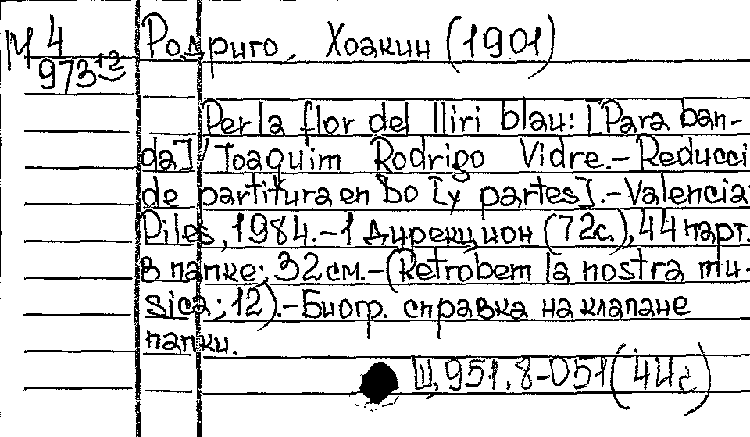 М 4 Родриго, Хоакин (1901)
973 12
Per la flor del lliri blau: [Para ban-
da] / Joaquim Rodrigo Vidre.-Reducci
de partitura en Do [y partes].-Valencia:
Piles, 1984.-1 дирекцион (72с.), 44 парт.
в папке; 32см.-(Retrobem la nostra mú-
sica; 12).-Биогр. справка на клапане
папки.
Щ951.8-051(44с)